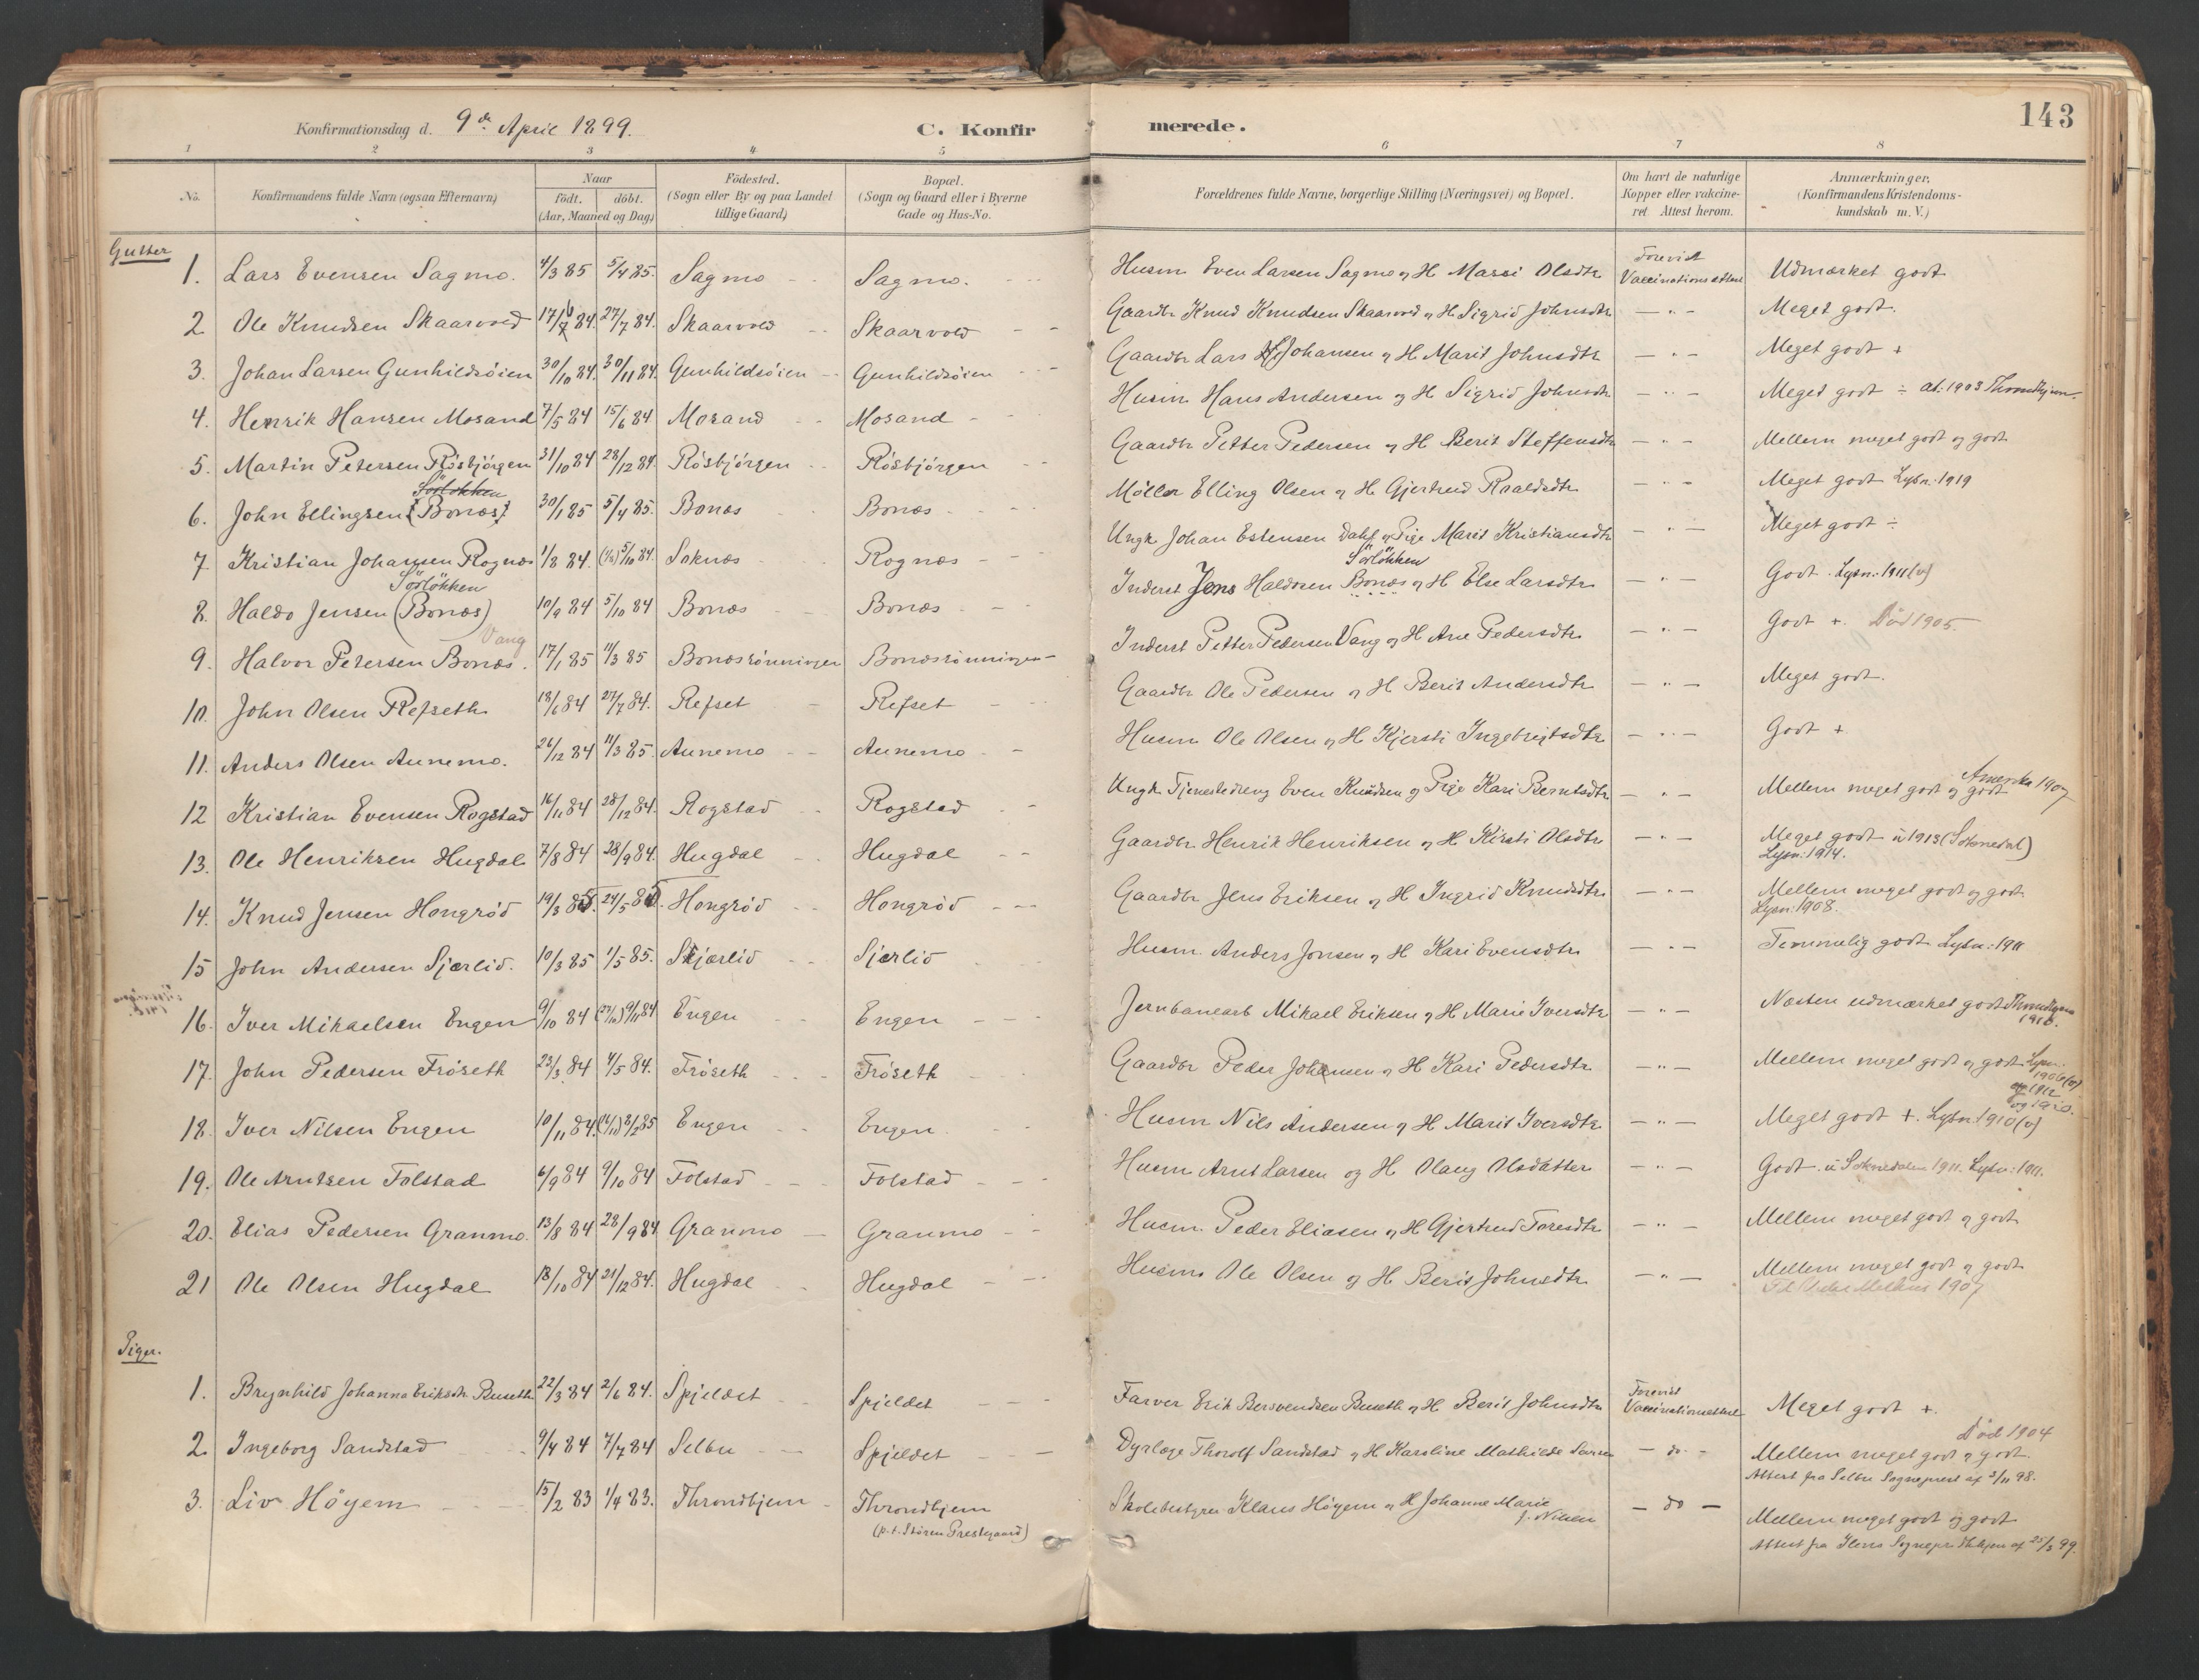 143
Konfirmationsdag d. 9de April 1899. C. Konfirmerede.
1 2 3 4 5 6 7 8
No. Konfirmandens fulde Navn (ogsaa Efternavn) Naar født. døbt. (Aar, Maaned og Dag) Fødested. (Sogn eller By og paa Landet tillige Gaard) Bopæl. (Sogn og Gaard eller i Byerne Gade og Hus-No. Forældrenes fulde Navne, borgerlige Stilling (Næringsvei) og Bopæl. Om havt de naturlige Kopper eller vakcineret. Attest herom. Anmærkninger, (Konfirmandens Kristendomskundskab m. V.)
Gutter
1. Lars Evensen Sagmo. 4/3 85 5/4 85. Sagmo Sagmo. Husm Even Larsen Sagmo og H Marsi Olsdtr Forevist Vaccinationsattest Udmærket godt
2 Ole Knudsen Skaarvold 17/6 84. 27/7 84. Skaarvold Skaarvold Gaardbr Knud Knudsen Skaarvold og H. Sigrid Johnsdtr — " — Meget godt.
3. Johan Larsen Gunhildsöien 30/10 84. 30/11 84. Gunhildsöien Gunhildsöien Gaardbr Lars Johansen og H Marit Johnsdtr — " — Meget godt +
4. Henrik Hansen Mosand 7/5 84 15/6 84 Mosand Mosand Husm Hans Andersen og H Sigrid Johnsdtr — " — Meget godt ÷ at: 1903 Throndhjem.
5. Martin Petersen Rösbjörgen 31/10 84 28/12 84. Rösbjörgen Rösbjörgen Gaardbr Petter Pedersen og H Berit Steffensdtr — " — Mellem meget godt og godt
Sörlökken
6. John Ellingsen (Bonæs) 30/1 85 5/4 85. Bonæs Bonæs Möller Elling Olsen og H. Gjertrud Roaldsdtr — " — Meget godt Lysn: 1919
7. Kristian Johansen Rognæs 1/8 84. 5/10 84. Soknæs Rognæs Ungk Johan Estensen Dahl og Pige Marit Kristiansdtr — " — Meget godt ÷
Sörlökken Sörlökken
8. Haldo Jensen (Bonæs) 10/9 84 5/10 84 Bonæs Bonæs Inderst Jens Haldosen Bonæs og H Else Larsdtr — " — Godt. Lysn: 1911 (v)
Vang
9. Halvor Petersen Bonæs. 17/1 85 11/3 85 Bonæsrönningen Bonæsrönningen Inderst Petter Pedersen Vang og H Ane Pedersdtr — " — Godt +. Död 1905.
10. John Olsen Refseth 18/6 84 27/7 84. Refset Refset Gaardbr Ole Pedersen og H Berit Andersdtr — " — Meget godt.
11. Anders Olsen Aunemo. 26/12 84 11/3 85. Aunemo Aunemo Husm Ole Olsen og H Kjersti Ingebrigtsdtr — " — Godt +
12 Kristian Evensen Rogstad 16/11 84 28/12 84. Rogstad Rogstad Ungk Tjenestedreng Even Knudsen og Pige Kari Berntsdtr — " — Mellem meget godt og godt Amerika 1907
13. Ole Henriksen Hugdal 7/8 84 28/9 84. Hugdal Hugdal Gaardbr Henrik Henriksen og H Kirsti Olsdtr — " — Meget godt u 1913 (Soknedal) Lysn: 1914.
14. Knud Jensen Hongröd 19/3 85. 24/5 85. Hongröd Hongröd Gaardbr Jens Eriksen og H Ingrid Knudsdtr — " — Mellem meget godt og godt Lysn: 1908.
15 John Andersen Sjærlid. 10/3 85 1/5 85. Skjærlid Sjærlid Husm. Anders Jonsen og H Kari Evensdtr — " — Temmelig godt Lysn: 1911
16. Iver Mikaelsen Engen 9/10 84 9/11 84 Engen Engen Jernbanearb Mikael Eriksen og H Marie Iversdtr — " — Næsten udmærket godt Throndhjem 1910.
17. John Pedersen Fröseth 23/3 84 4/5 84. Fröseth Fröseth Gaardbr Peder Johansen og H Kari Pedersdtr — " — Mellem meget godt og godt Lysn. 1906 (v) og 1912 og 1920.
18. Iver Nilsen Engen 10/11 84. 8/2 85 Engen Engen Husm Nils Andersen og H Marit Iversdtr — " — Meget godt +. Lysn: 1910 (v)
19. Ole Arntsen Folstad 6/9 84 9/10 84 Folstad Folstad Husm Arnt Larsen og H Olaug Olsdatter — " — Godt. u Soknedalen 1911. Lysn: 1911.
20. Elias Pedersen Granmo. 13/8 84 28/9 84 Granmo Granmo Husm Peder Eliasen og H Gjertrud Toresdtr — " — Mellem meget godt og godt
21 Ole Olsen Hugdal 18/10 84 21/12 84. Hugdal Hugdal Husm Ole Olsen og H Berit Johnsdtr — " — Mellem meget godt og godt
Melhus 1907
Piger.
1. Brynhild Johanna Eriksdtr Buseth 22/3 84 2/6 84. Spjeldet Spjeldet Farver Erik Bersvendsen Buseth og H Berit Johnsdtr Forevist Vaccinationsattest Meget godt +.
2. Ingeborg Sandstad 9/4 84 7/7 84 Selbu Spjeldet Dyrlæge Thorolf Sandstad og H Karoline Mathilde Larsen — do — Mellem meget godt og godt. Död 1904
Attest fra Selbu Sogneprest af 3/11 98.
3. Liv Höyem 15/2 83 1/4 83. Throndhjem Throndhjem Skolebestyrer Klaus Höyem og H Johanne Marie f. Nilsen — do — Mellem meget godt og godt
(p. t. Stören Prestegaard) Attest fra Ilens Sognepr Thhjem af 25/3 99.